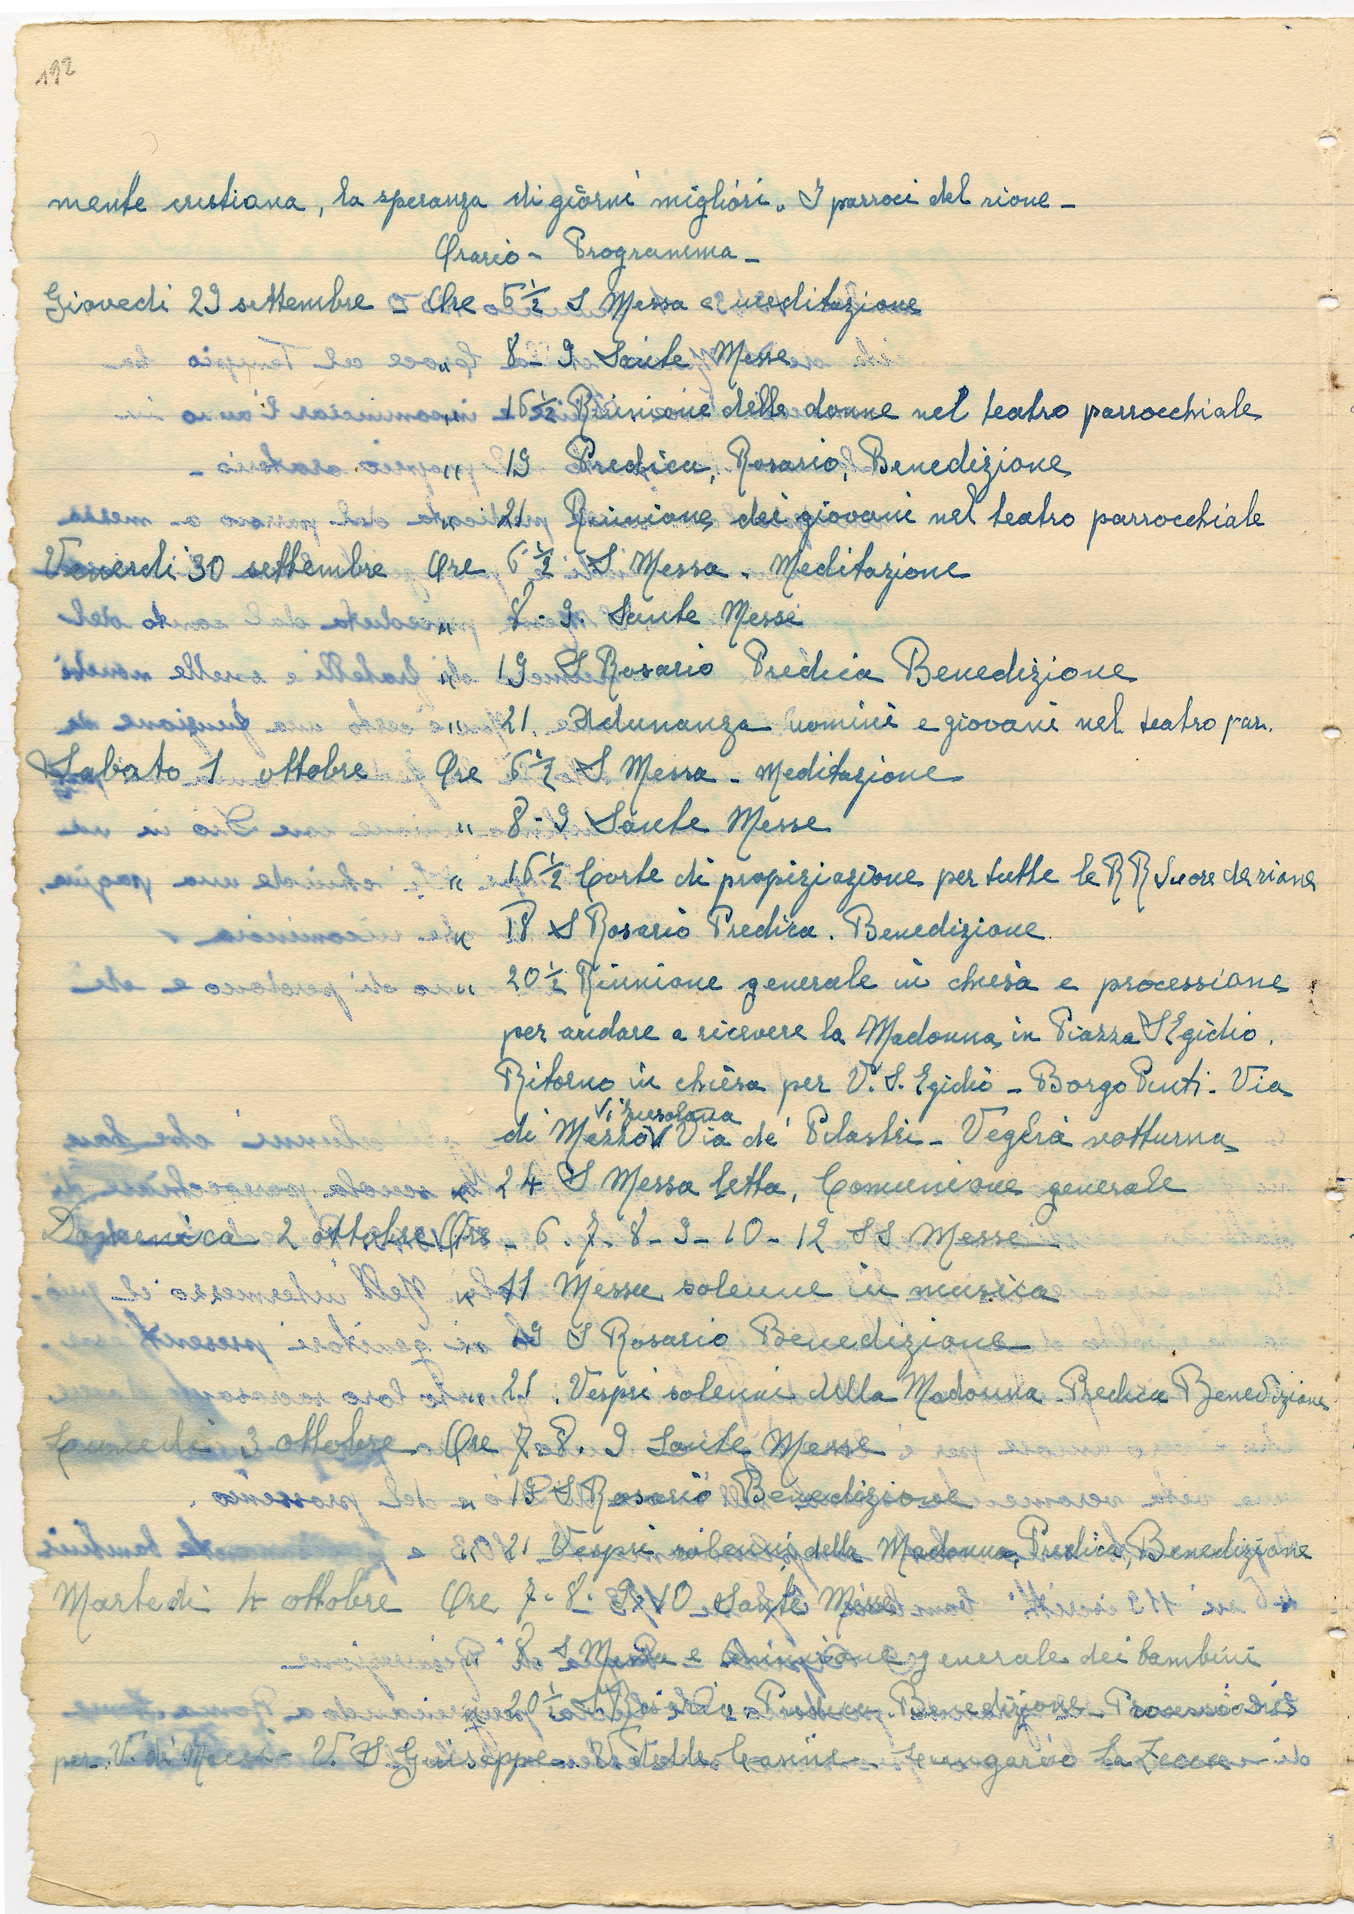 192
mente cristiana, la speranza di giorni migliori. I parroci del rione -
Orario - Programma -
Giovedi 29 settembre Ore 6 1/2 S Messa e meditazione
" 8 - 9 Sante Messe
" 16 1/2 Riunione delle donne nel teatro parrocchiale
" 19 Predica, Rosario, Benedizione
" 21 Riunione dei giovani nel teatro parrocchiale
Venerdi 30 settembre Ore 6 1/2 S Messa. Meditazione
" 8 - 9. Sante Messe
" 19 S Rosario Predica Benedizione
" 21. Adunanza uomini e giovani nel teatro par.
Sabato 1 ottobre Ore 6 1/2 S Messa - Meditazione
" 8 - 9 Sante Messe
" 16 1/2 Corte di propiziazione per tutte le RR Suore de rione
" 18 S Rosario Predica. Benedizione
" 20 1/2 Riunione generale in chiesa e processione
per andare a ricevere la Madonna in Piazza S Egidio.
Ritorno in chiesa per V. S. Egidio - Borgo Pinti - Via
di Mezzo V. Fiesolana Via de' Pilastri - Veglia notturna
" 24 S Messa letta, Comunione generale
Domenica 2 ottobre Ore - 6. 7. 8 - 9 - 10 - 12 SS Messe
" 11 Messa solenne in musica
" 19 S Rosario Benedizione
" 21. Vespri solenni della Madonna Predica Benedizione
Lunedi 3 ottobre Ore 7. 8. 9 Sante Messe
" 19 S Rosario Benedizione
" 21 Vespri solenni della Madonna, Predica, Benedizione
Martedi 4 ottobre Ore 7. 8. 9. 10 Sante Messe
8 S Messa e Comunione generale dei bambini
" 20 1/2 S Rosario Predica. Benedizione - Processione
per V. di Mezzo - V. S Giuseppe - V. delle Casine - Lungarno La Zecca